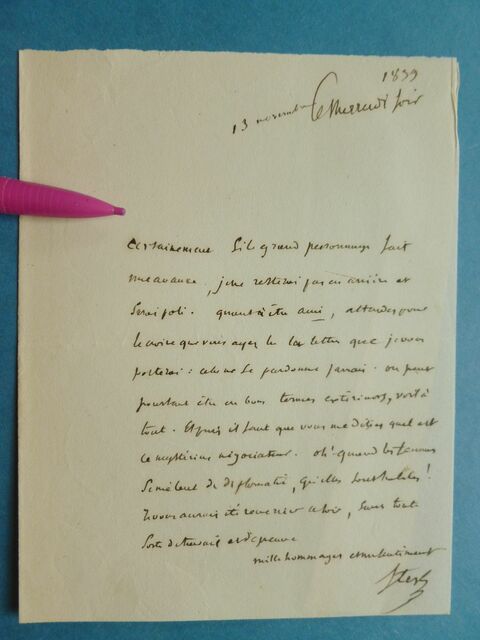 1839
13 novembre Ce Mercredi soir
Certainement si le grand personnage fait
une avance, je ne resterai pas en arrière et
serai poli. quant à être ami, attendez pour
le croire que vous ayez lu la lettre que je vous
porterai : cela ne se pardonne jamais. on peut
pourtant être en bons termes extérieurs, voilà
tout. Et puis il faut que vous me disiez quel est
ce mystérieux négociateur. oh! quand les femmes
se mêlent de diplomatie, qu'elles sont habiles!
Je vous aurais été remercier ce soir, sans toute
sorte de travail et d'épreuve
mille hommages et mille sentiment